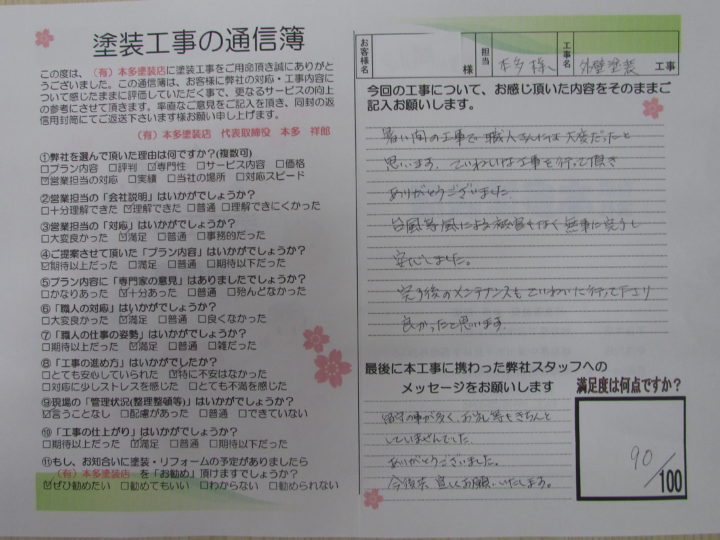 塗装工事の通信簿
この度は、(有)本多塗装店に塗装工事をご用命頂き誠にありがとうございました。この通信簿は、お客様に弊社の対応・工事内容
について感じたままに評価していただく事で、更なるサービスの向上
の参考にさせて頂きます。率直なご意見をご記入を頂き、同封の返
信用封筒にてご返送下さいます様お願い申し上げます。
(有)本多塗装店 代表取締役 本多 祥郎
①弊社を選んで頂いた理由は何ですか?(複数可)
□プラン内容 □評判 ☑専門性 □サービス内容 □価格
☑営業担当の対応 □実績 □当社の場所 □対応スピード
②営業担当の「会社説明」はいかがでしょうか?
□十分理解できた ☑理解できた □普通 □理解できにくかった
③営業担当の「対応」はいかがでしょうか?
□大変良かった ☑満足 □普通 □事務的だった
④ご提案させて頂いた「プラン内容」はいかがでしょうか?
☑期待以上だった □満足 □普通 □期待以下だった
⑤プラン内容に「専門家の意見」はありましたでしょうか?
□かなりあった ☑十分あった □普通 □殆んどなかった
⑥「職人の対応」はいかがでしょうか?
□大変良かった ☑満足 □普通 □良くなかった
⑦「職人の仕事の姿勢」はいかがでしょうか?
□期待以上だった ☑満足 □普通 □雑だった
⑧「工事の進め方」はいかがでしたか?
□とても安心していられた ☑特に不安はなかった
□対応に少しストレスを感じた □とても不満を感じた
⑨現場の「管理状況(整理整頓等)」はいかがでしょうか?
☑言うことなし □配慮があった □普通 □できていない
⑩「工事の仕上がり」はいかがでしょうか?
□期待以上だった ☑満足 □普通 □期待以下だった
⑪もし、お知合いに塗装・リフォームの予定がありましたら
(有)本多塗装店 を「お勧め」頂けますでしょうか?
☑ぜひ勧めたい □勧めてもいい □わからない □勧められない
お客様名 様 担当 本多様、 工事名 外壁塗装 工事
今回の工事について、お感じ頂いた内容をそのままご
記入お願いします。
暑い間の工事で職人さんには大変だったと
思います。ていねいな工事を行って頂き
ありがとうございました
台風等風による被害もなく無事に完了し
安心しました。
完了後のメンテナンスもていねいに行って下さり
良かったと思います。
最後に本工事に携わった弊社スタッフへの
メッセージをお願いします
留守の事が多く、お茶等もきちんと
していませんでした。
ありがとうございました。
今後共 宜しくお願いいたします。
満足度は何点ですか?
90/100